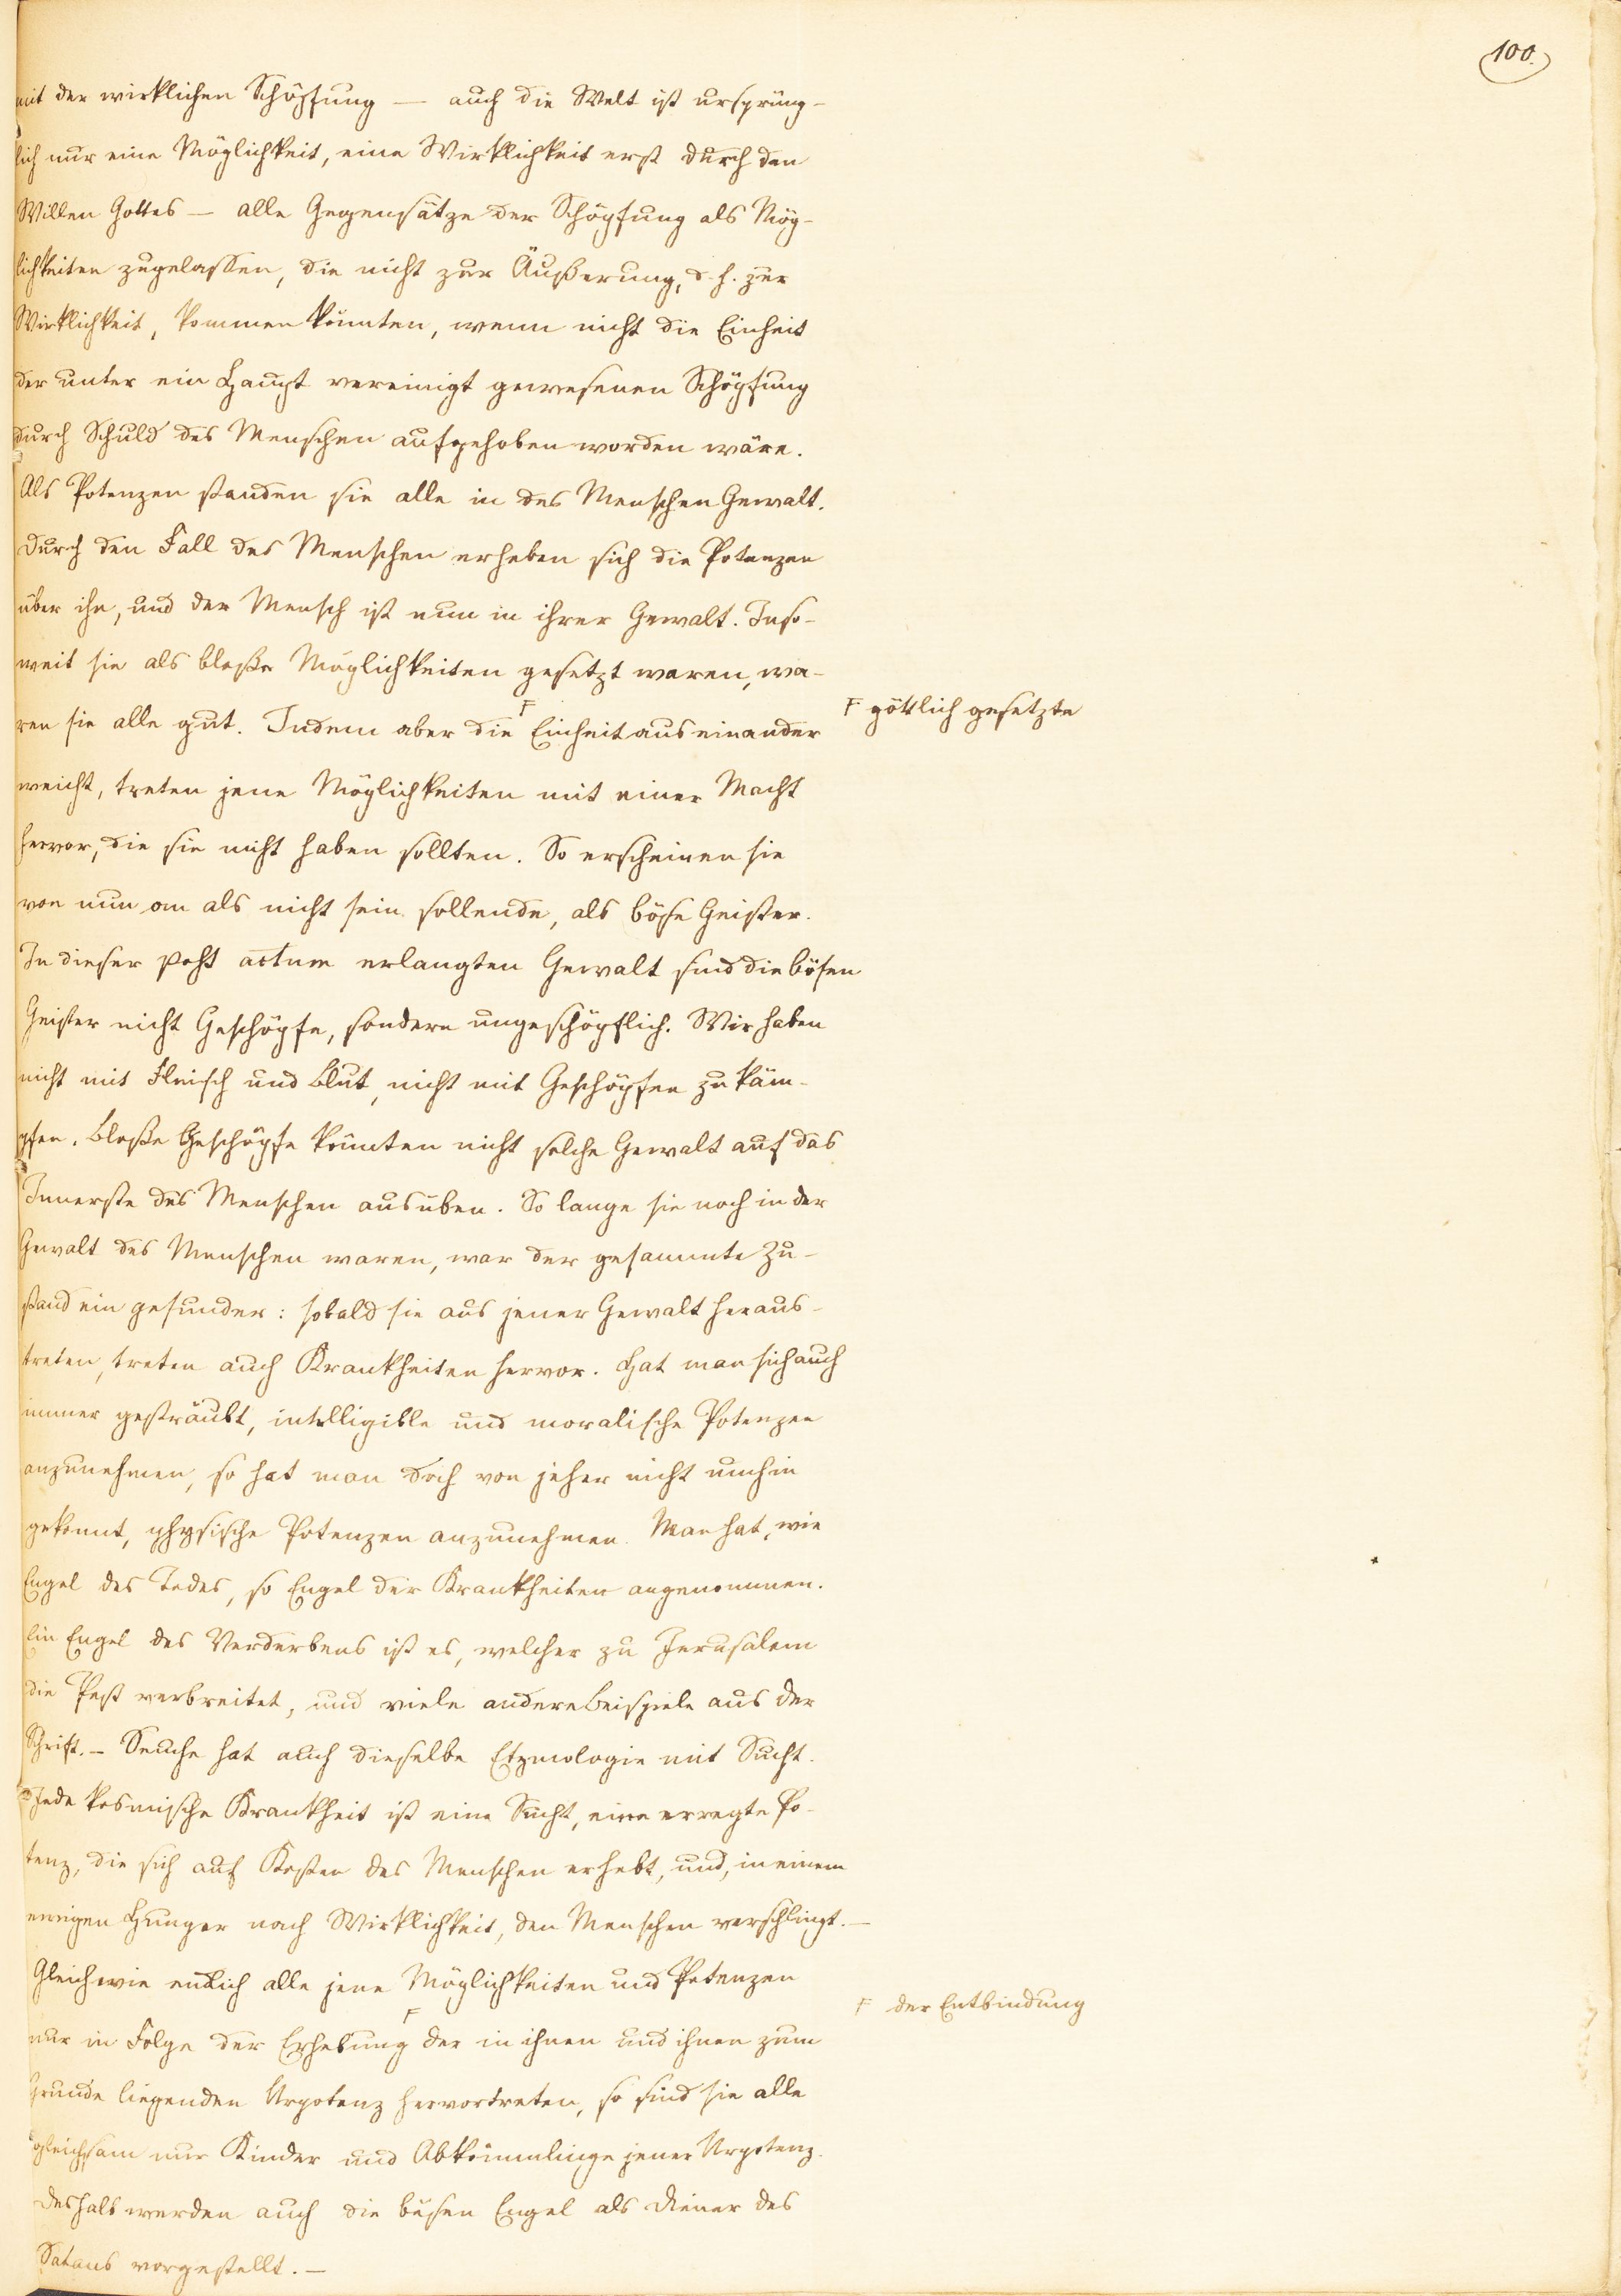 100.
mit der wirklichen Schöpfung — auch die Welt ist ursprüng-
lich nur eine Möglichkeit, eine Wirklichkeit erst durch den
Willen Gottes — alle Gegensätze der Schöpfung als Mög-
lichkeiten zugelassen, die nicht zur Äußerung, d. h. zur
Wirklichkeit, kommen könnten, wenn nicht die Einheit
der unter ein Haupt vereinigt gewesenen Schöpfung
durch Schuld des Menschen aufgehoben worden wäre.
Als Potenzen standen sie alle in des Menschen Gewalt.
Durch den Fall des Menschen erheben sich die Potenzen
über ihn, und der Mensch ist nun in ihrer Gewalt. Inso-
weit sie als bloße Möglichkeiten gesetzt waren, wa-
ren sie alle gut. Indem aber die F Einheit auseinander
F göttlich gesetzte
weicht, treten jene Möglichkeiten mit einer Macht
hervor, die sie nicht haben sollten. So erscheinen sie
von nun an als nicht sein sollende, als böse Geister.
In dieser post actum erlangten Gewalt sind die bösen
Geister nicht Geschöpfe, sondern ungeschöpflich. Wir haben
nicht mit Fleisch und Blut, nicht mit Geschöpfen zu käm-
pfen. Bloße Geschöpfe könnten nicht solche Gewalt auf das
Innerste des Menschen ausüben. So lange sie noch in der
Gewalt des Menschen waren, war der gesammte Zu-
stand ein gesunder: sobald sie aus jener Gewalt heraus-
treten, treten auch Krankheiten hervor. Hat man sich auch
immer gesträubt, intelligible und moralische Potenzen
anzunehmen, so hat man doch von jeher nicht umhin
gekonnt, physische Potenzen anzunehmen. Man hat, wie
Engel des Todes, so Engel der Krankheiten angenommen.
Ein Engel des Verderbens ist es, welcher zu Jerusalem
die Pest verbreitet, und viele andere Beispiele aus der
Schrift. – Seuche hat auch dieselbe Etymologie mit Sucht.
Jede kosmische Krankheit ist eine Sucht, eine erregte Po-
tenz, die sich auf Kosten des Menschen erhebt, und, in einem
ewigen Hunger nach Wirklichkeit, den Menschen verschlingt. —
Gleichwie endlich alle jene Möglichkeiten und Potenzen
nur in Folge der Erhebung F der in ihnen und ihnen zum
F der Entbindung
Grunde liegenden Urpotenz hervortreten, so sind sie alle
gleichsam nur Kinder und Abkömmlinge jener Urpotenz.
Deshalb werden auch die bösen Engel als Diener des
Satans vorgestellt. —